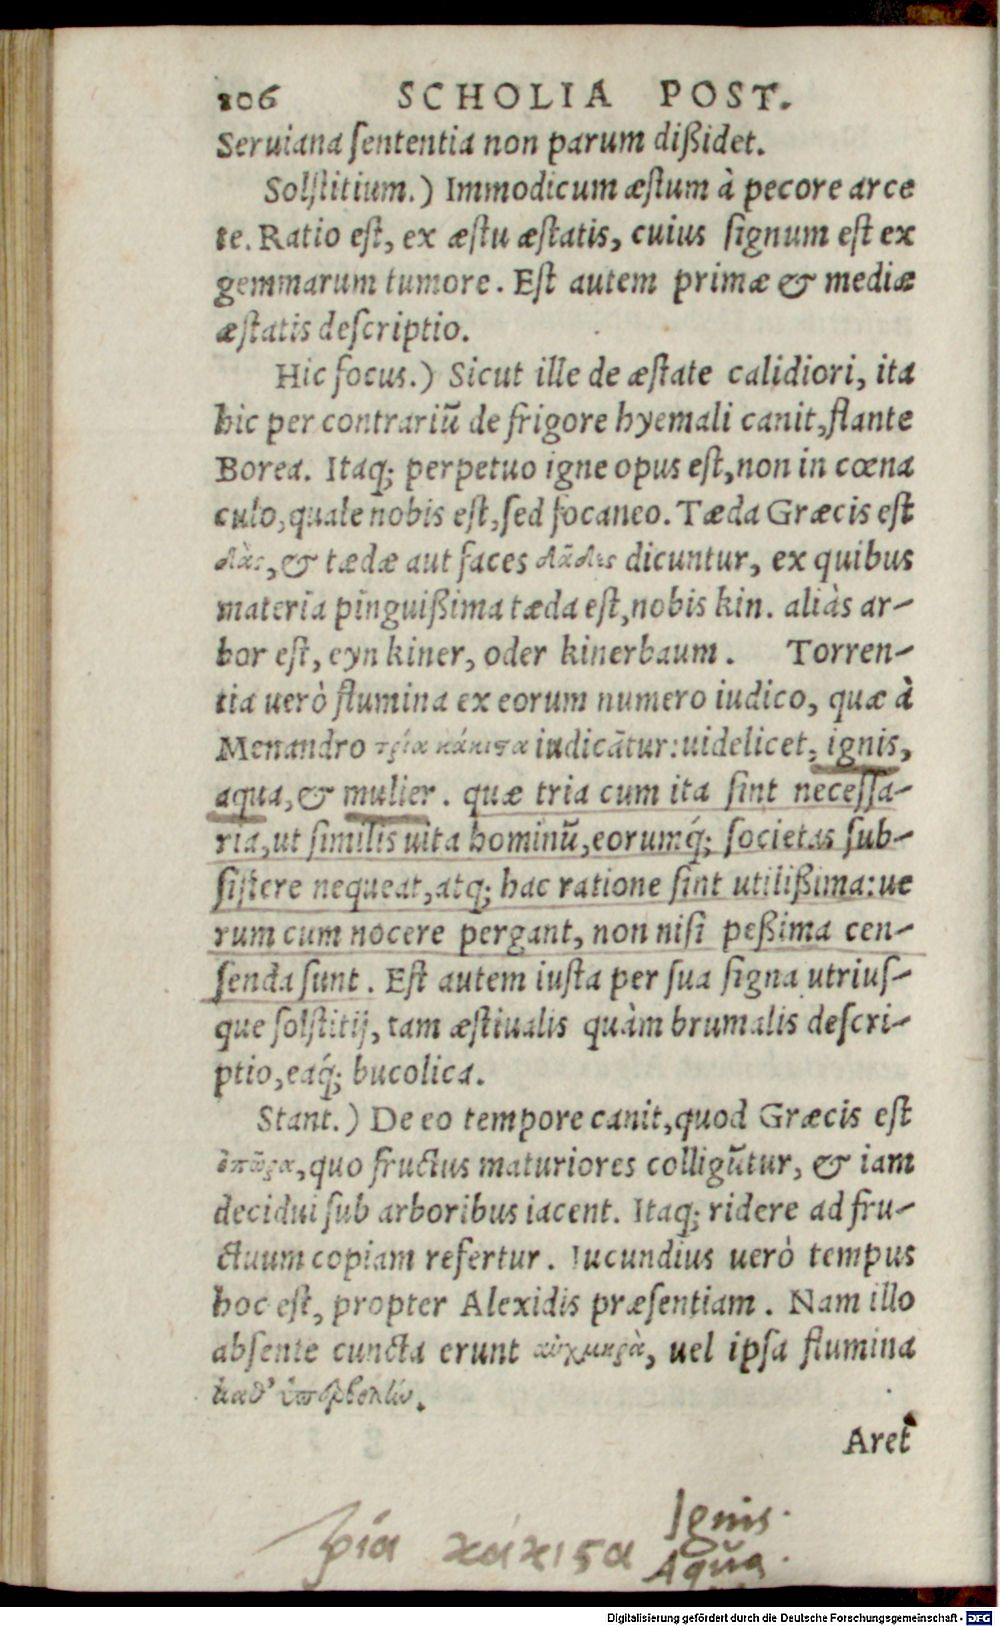 206 SCHOLIA POST.
Seruiana ſententia non parum dißidet.
Solſtitium.) Immodicum æſtum à pecore arce
te. Ratio eſt, ex æſtu æſtatis, cuius ſignum eſt ex
gemmarum tumore. Eſt autem primæ & mediæ
æſtatis deſcriptio.
Hic focus.) Sicut ille de æſtate calidiori, ita
hic per contrariũ de frigore hyemali canit, flante
Borea. Itaq; perpetuo igne opus eſt, non in cœna
culo, quale nobis eſt, ſed focaneo. Tæda Græcis eſt
δὰς, & tædæ aut faces δᾶδες dicuntur, ex quibus
materia pinguißima tæda eſt, nobis kin. aliàs ar-
bor eſt, eyn kiner, oder kinerbaum. Torren-
tia uerò flumina ex eorum numero iudico, quæ à
Menandro τρία κάκιϛα iudicãtur: uidelicet, ignis,
aqua, & mulier. quæ tria cum ita ſint neceſſa-
ria, ut ſimilis uita hominũ, eorumq́; ſocietas ſub-
ſiſtere nequeat, atq; hac ratione ſint utilißima: ue
rum cum nocere pergant, non niſi peßima cen-
ſenda ſunt. Eſt autem iuſta per ſua ſigna utriuſ-
que ſolſtitij, tam æſtiualis quàm brumalis deſcri-
ptio, eaq́; bucolica.
Stant.) De eo tempore canit, quod Græcis eſt
ὀπώρα, quo fructus maturiores colligũtur, & iam
decidui ſub arboribus iacent. Itaq; ridere ad fru-
ctuum copiam refertur. Iucundius uerò tempus
hoc eſt, propter Alexidis præſentiam. Nam illo
abſente cuncta erunt αὐχμηρὰ, uel ipſa flumina
καθ' ὑπερβολὴν.
Aret
τρία κάκιϛα Ignis.
Aqua.
Digitalisierung gefördert durch die Deutsche Forschungsgemeinschaft - DFG